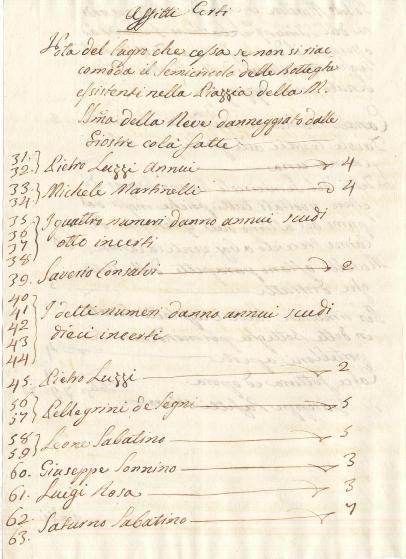 Affitti Certi
Nota del Lucro, che cessa se non si riac
comoda il Semicircolo delle Botteghe
esistenti nella Piazzia della M.
Ilma della Neve danneggiato dalle
Giostre colà fatte
31. 32. } Pietro Luzzi annui 4
33. 34. } Michele Martinelli 4
35 36 37 38 } I quattro numeri danno annui scudi
otto incerti
39. Saverio Consalvi 2
40 41 42 43 44 } I detti numeri danno annui scudi
dieci incerti
45. Pietro Luzzi 2
56 57 } Pellegrini de Segni 5
58 59 } Leone Sabatino 5
60. Giuseppe Sonnino 3
61. Luigi Rosa 3
62. 63. Saturno Sabatino